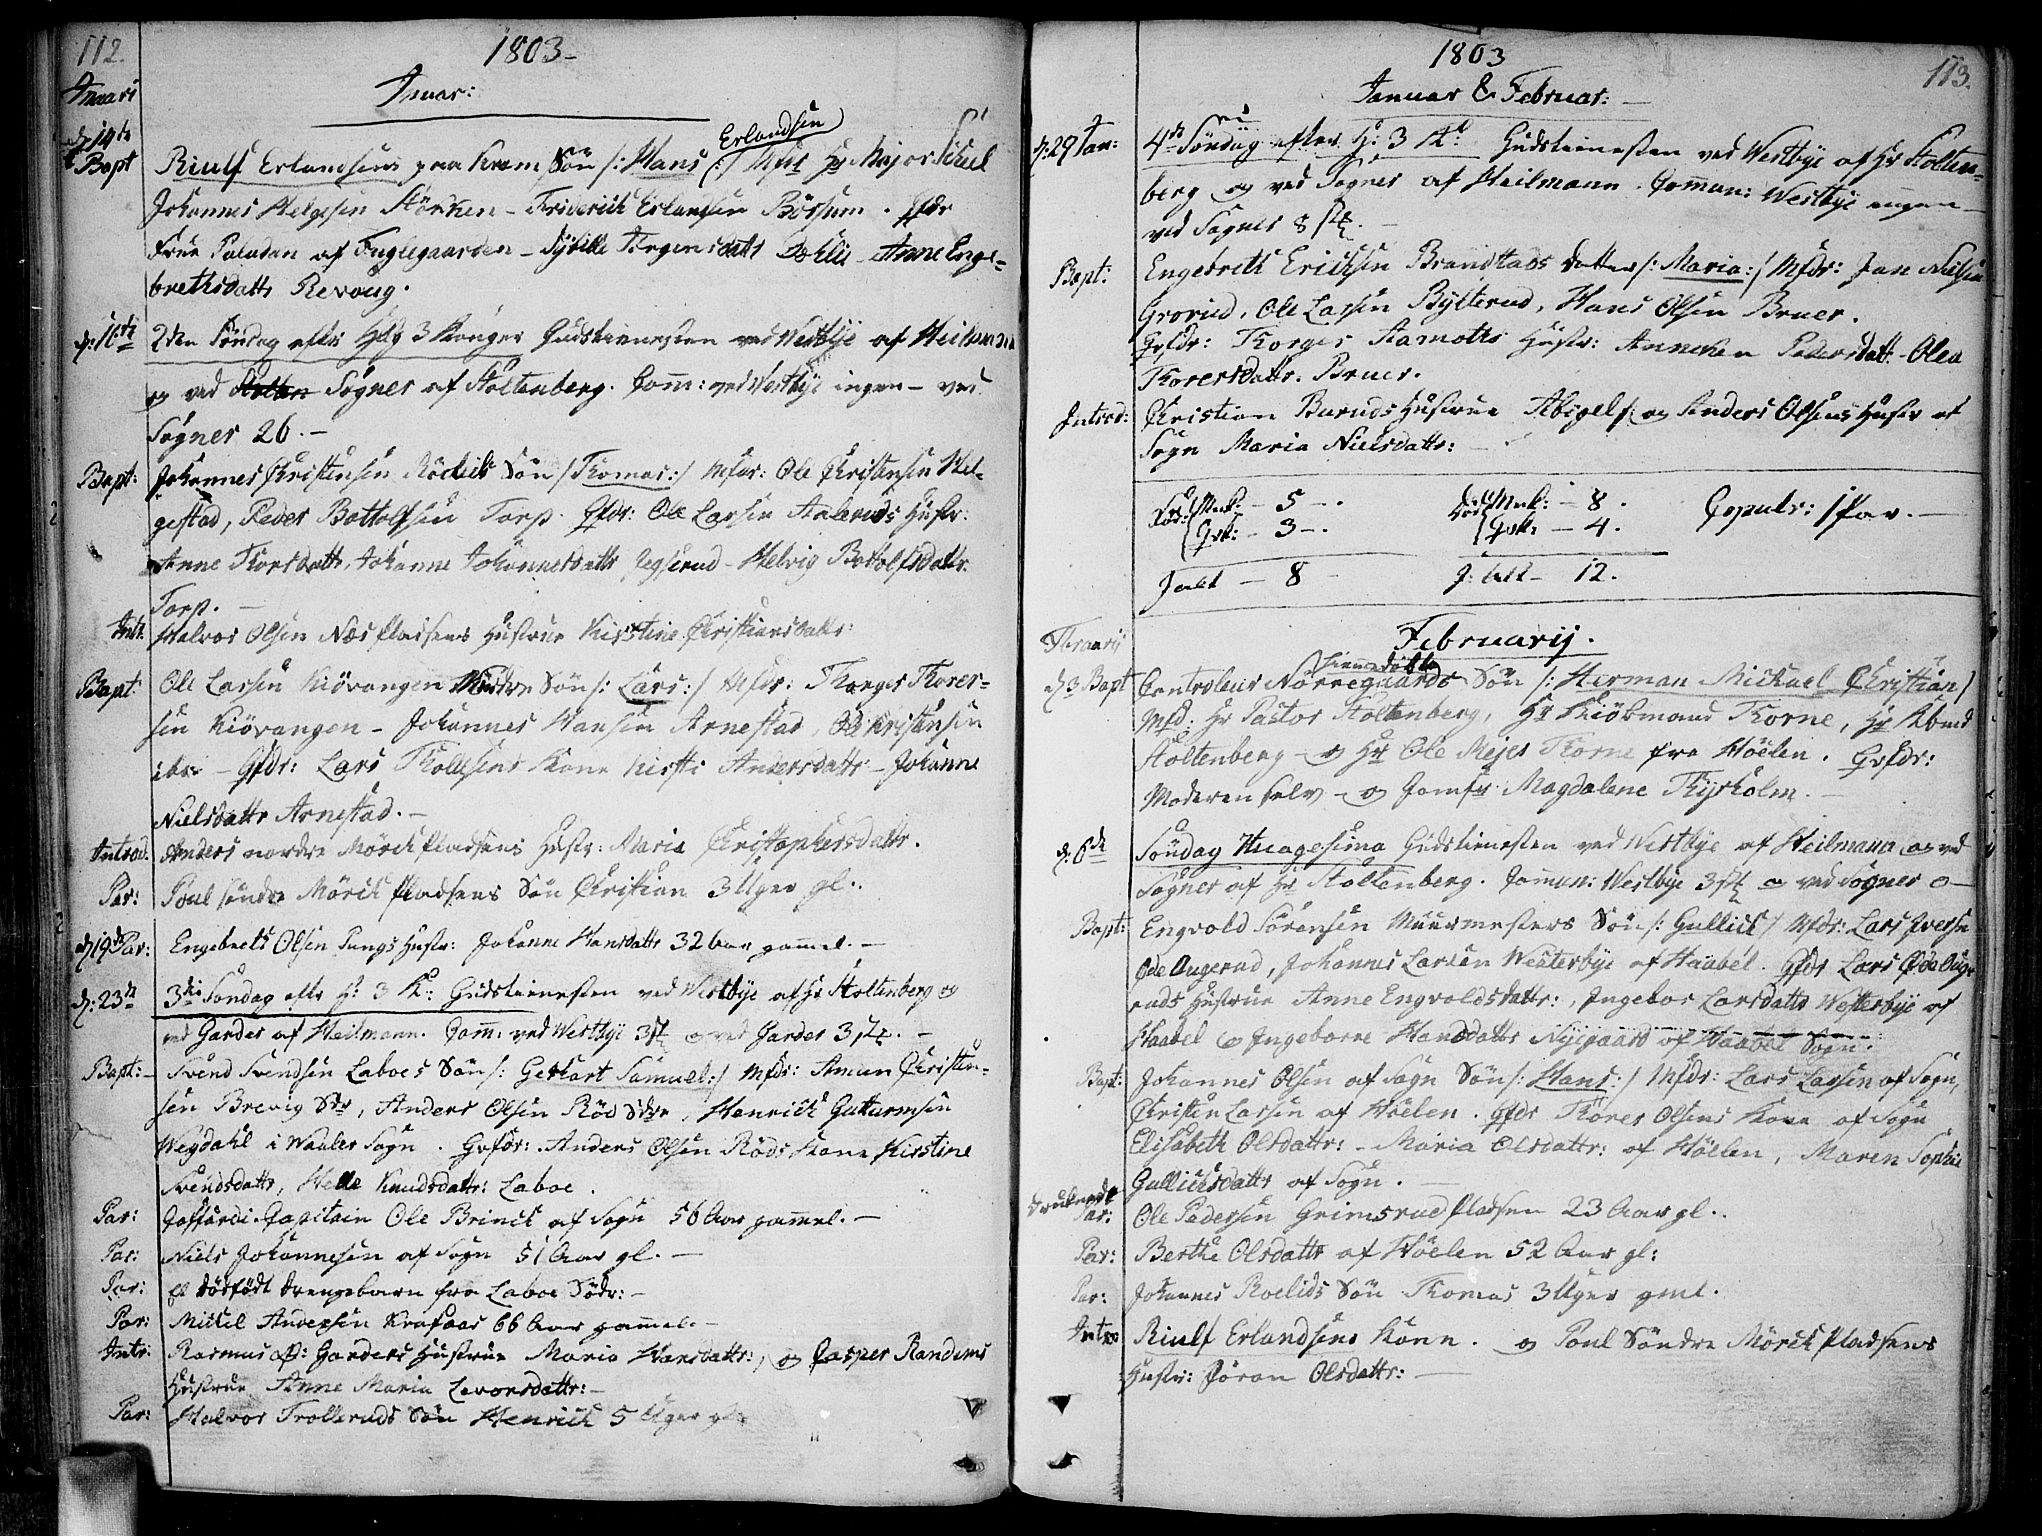 112.
1803.
Januari
Januar:
d 14de
Bapt
Erlandsen
Riulf Erlandsens paa Krom Søn /: Hans :/ Mfdr Hr Major
Johannes Helgesen Störken - Friderich Erlandsen Börsum. Qfdr
Frue Paludan af Fuglegaarden - Sybille Jörgensdattr Dehlie - Anne Enge-
brethsdattr Revoug.
d: 16de 2den Søndag efter Hllg 3 Konger Gudstienesten ved Westbye af Heilmann
og ved Sogner af Stoltenberg. Com: ved Westbye ingen - ved
Sogner 26. -
Bapt: Johannes Christensen Röelids Søn /: Thomas :/ Mfdr: Ole Christensen Hel-
gestad, Peder Bottolfsen Torp. Qfdr: Ole Larsen Hustr:
Anne Thorsdattr, Johanne Johannesdattr - Helvig Botolfsdattr
Torp. -
Intr. Halvor Olsen Næspladsens Hustrue Kirstine Christiansdattr:
Bapt: Ole Larsen Kiövangen Søn /: Lars :/ Mfdr: Thorger Thorer-
sen Kiövangen - Johannes Hansen Arnestad, Ole Kristensen
ibm - Qfdr: Lars Kone Kirsti Andersdattr - Johanne
Nielsdattr Arnestad. -
Introd: Anders nordre Mörckpladsens Hustr: Maria Christophersdattr.
Par: Poul söndre Mörck Pladsens Søn Christian 3 Uger gl.
d 19de Par: Engebrets Olsen Pungs Hustr: Johanne Hansdattr 32 Aar gammel. -
d: 23de 3die Søndag eftr H: 3 K: Gudstienesten ved Westbye af Hr Stoltenberg og
ved Garder af Heilmann. Com: ved Westbye 3 st og ved Garder 3 st. -
Bapt: - Svend Svendsen Laboes Søn /: Gerhart Samuel :/ Mfdr: Amun Christen-
sen Brevig Sdr, Anders Olsen Röd Sdre, Henrich Gutturmsen
Wegdahl i Waaler Sogn. Qvfdr: Anders Olsen Röds Kone Kirstine
Svendsdattr, Helle Knudsdattr: Laboe.
Par: Coffardi Capitain Ole Brinck af Sogn 56 Aar gammel. -
Par: Niels Johannesen af Sogn 51 Aar gl. -
Par: et dödfödt drengebarn fra Laboe Södr: -
Par: Mickel Andersen Krafaas 66 Aar gammel. -
Intr: Rasmus Garders Hustrue Maria Hansdattr:, og Casper Randems
Hustrue Anne Maria Levorsdattr: -
Par: Halvor Trolleruds Søn Henrick 5 Uger gl.
1803
113.
Januar & Februar: -
d: 29 Jan: 4de Søndag efter H: 3 K: Gudstienesten ved Westbye af Hr Stolten-
berg og ved Sogner af Heilmann. Commun: Westbye ingen -
ved Sogner 8 st. -
Bapt: Engebreth Erichsen Brandstads Datter /: Maria :/ Mfdr: Jan Nielsen
Grorud, Ole Larsen Bylterud, Hans Olsen Bruer.
Qvfdr: Thorger Aamoths Hustr: Anneken Pedersdatt: - Olea
Thorersdattr. Bruer.
Introd: Christian Buruds Hustrue Abigel og Anders Olsens Hustr af
Sogn Maria Nielsdattr:
Föd: Mnk: - 5 -. Död: Mnk: - 8. Copuler: 1 Par. -
Qvk: - 3 -. Qvk: - 4.
Jalt - 8 J: alt - 12.
Februarij.
d 3 Bapt Controleur Nörregaards Søn /: Herman Michael Christian /
Mfd: Hr Pastor Stoltenberg, Hr Kiöbmand Thorne, Hr
Stoltenberg - og Hr Ole Mejer Thorne fra Höelen. Qvfdr:
Moderen selv - og Jomfr Magdalene Thyrholm. -
d: 6de Søndag Gudstienesten ved Westbye af Heilmann og ved
Sogner af Hr Stoltenberg. Comun: Westbye 3 st og ved Sogner o -
Bapt: Engvold Sörensen Muurmesters Søn /: Gullich / Mfdr: Lars Iversen
Öde Augerud, Johannes Larsen Westerbye af Haabel. Qfdr Lars Öde Auge-
ruds Hustrue Anne Engvoldsdattr:, Ingebor Larsdattr Westerbye af
Haabel og Ingeborne Hansdattr Nyegaard af Haabel Sogn.
Bapt: Johannes Olsen af Sogn Søn /: Hans :/ Mfdr: Lars Larsen af Sogn,
Christen Larsen af Höelen. Qfdr Thorer Olsens Kone af Sogn
Elisabeth Olsdattr: - Maria Olsdattr: af Höelen, Maren Sophie
Gullichsdattr af Sogn. -
Druknede
Par: Ole Pedersen Grimsrudpladsen 23 Aar gl.
Par: Berthe Olsdattr af Höelen 52 Aar gl:
Par: Johannes Roelids Søn Thomas 3 Uger gml.
Intro Riulf Erlandsens Konn. og Poul Söndre Mörck Pladsens
Hustr: Jöran Olsdattr: -